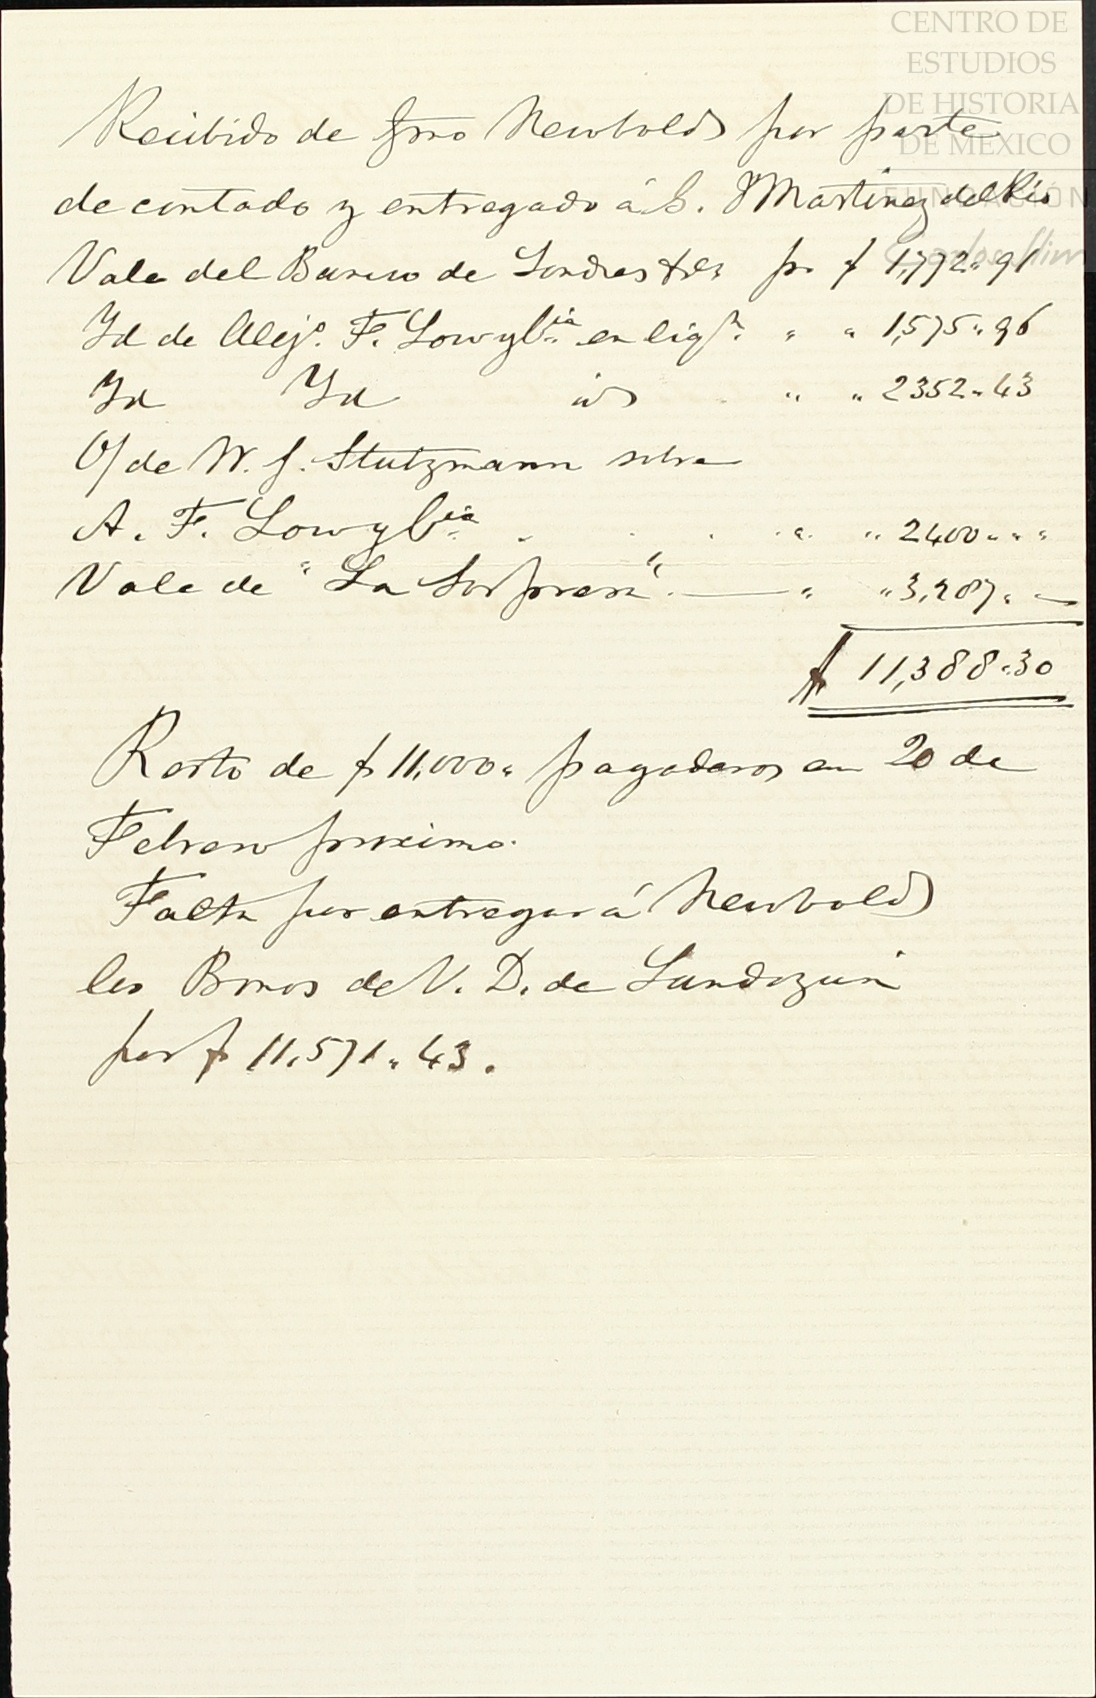 CENTRO DE
ESTUDIOS
DE HISTORIA
DE MEXICO
FUNDACIÓN
Carlos Slim
Recibido de Frno Newbold por parte
de contado y entregado á G. Martinez del Rio
Vale del Banco de Londres &a &a pr. $ 1,772 " 91
Id de Alejo. F. Low y Cia. en liqn. " " 1,575 " 96
Id Id id " " 2352 " 43
O/ de W. J. Stutzmann sobre
A. F. Low y Cia. " " 2400 " "
Vale de "La Sorpresa". — " " 3,287 " —
$ 11,388 " 30
Resto de $ 11,000 " pagaderos en 20 de
Febrero proximo.
Falta por entregar á Newbold
los Bonos de V. D. de Landázuri
por $ 11,571 " 43.